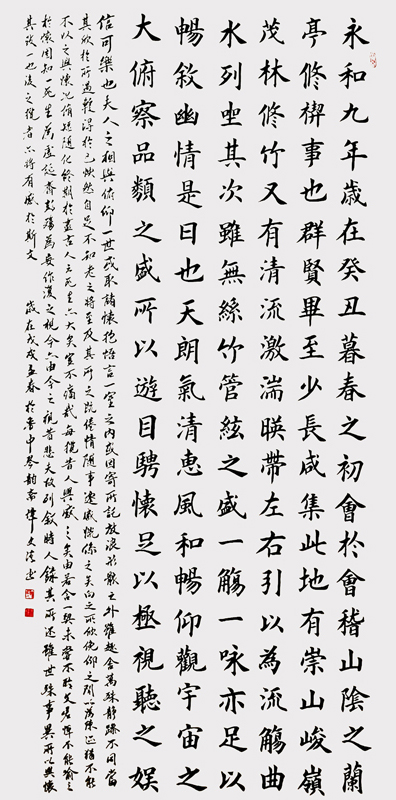 永和九年歲在癸丑暮春之初會於會稽山陰之蘭
亭修禊事也群賢畢至少長咸集此地有崇山峻嶺
茂林修竹又有清流激湍暎帶左右引以為流觴曲
水列坐其次雖無絲竹管絃之盛一觴一咏亦足以
暢敘幽情是日也天朗氣清惠風和暢仰觀宇宙之
大俯察品類之盛所以遊目騁懷足以極視聽之娛
信可樂也夫人之相與俯仰一世或取諸懷抱悟言一室之內或因寄所託放浪形骸之外雖趣舍萬殊靜躁不同當
其欣於所遇暫得於己怏然自足不知老之將至及其所之既倦情隨事遷感慨係之矣向之所欣俛仰之間以為陳迹猶不能
不以之興懷況脩短隨化終期於盡古人云死生亦大矣豈不痛哉每攬昔人興感之由若合一契未嘗不臨文嗟悼不能喻之
於懷固知一死生為虛誕齊彭殤為妄作後之視今亦由今之視昔悲夫故列敘時人錄其所述雖世殊事異所以興懷
其致一也後之攬者亦將有感於斯文 歲在戊戌孟春於魯中琴韵齋